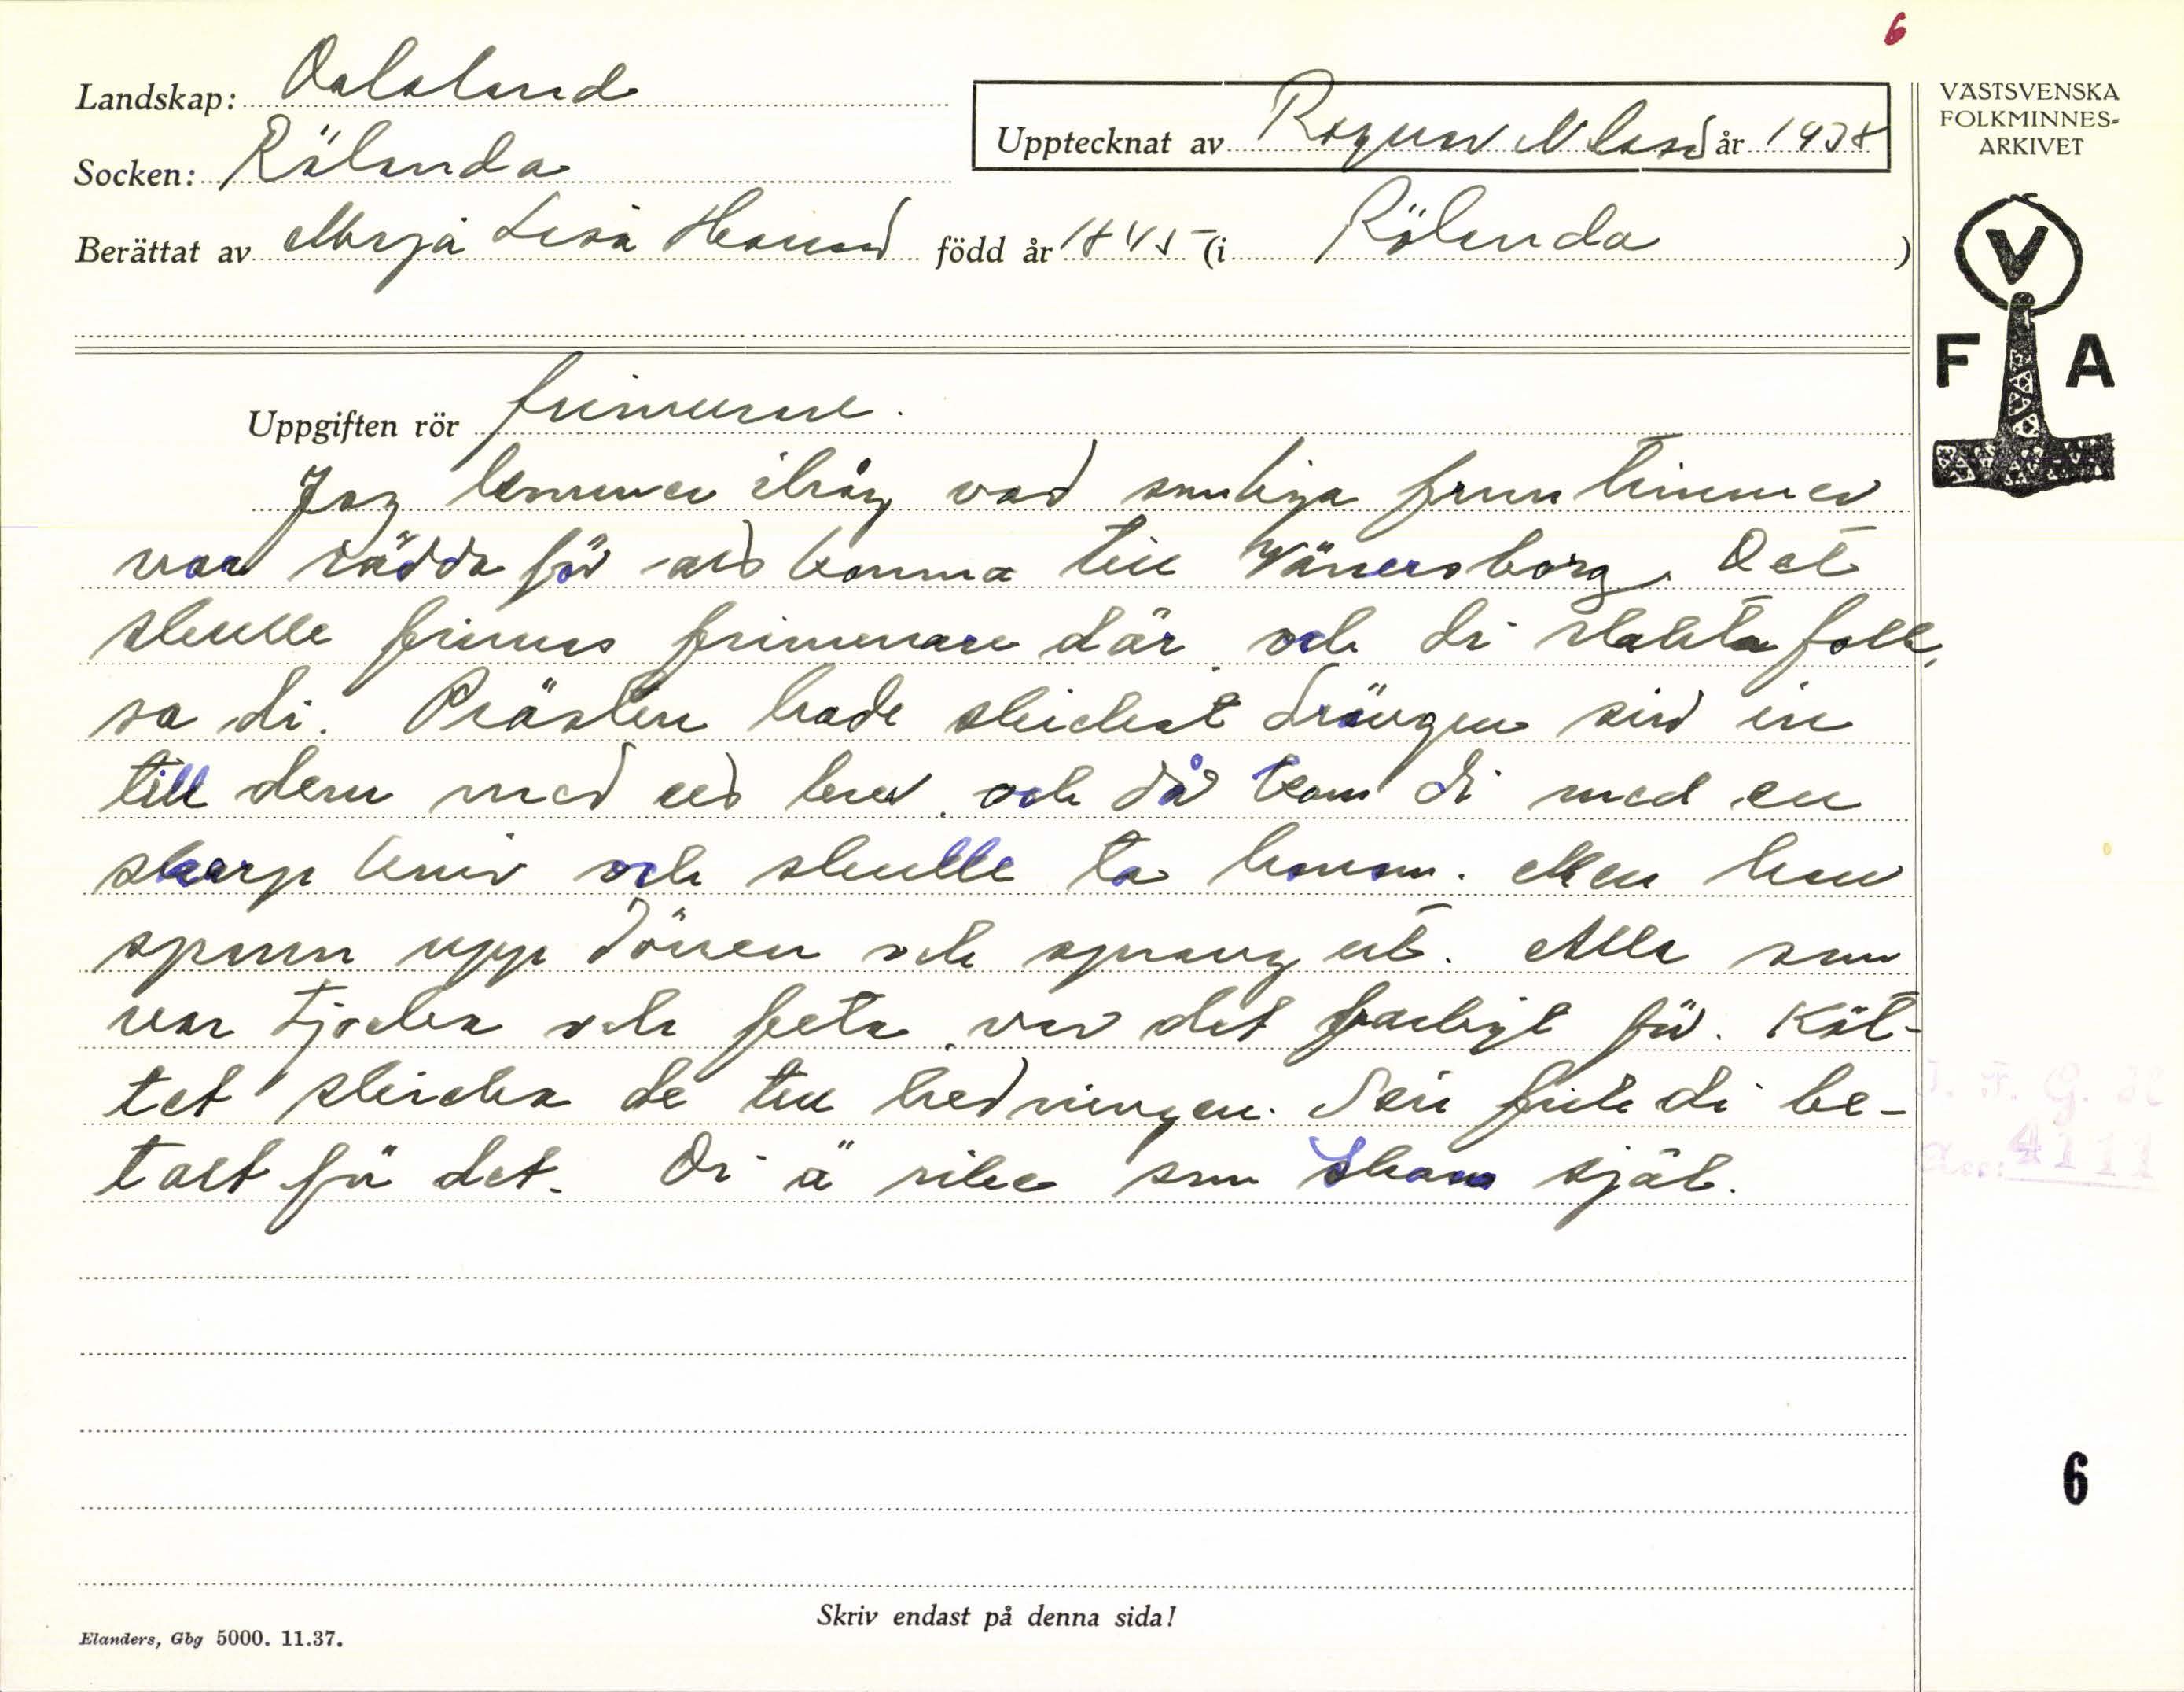 6
Landskap: Dalsland
Upptecknat av Ragnar Nilsson år 1938
VÄSTSVENSKA
FOLKMINNES-
ARKIVET
Socken: Rölanda
Berättat av Maja Lisa född år 1845 (i Rölanda)
V
F A
Uppgiften rör frimurare.
Jag kommer ihåg vad somliga fruntimmer
var rädda för att komma till Vänersborg. Det
skulle finnas frimurare där och di slakta folk,
sa di. Prästen hade skickat drängen sin in
till dem med ett brev och då kom di med en
skarp kniv och skulle ta honom. Men han
spann upp dörren och sprang ut. Alla som
var tjocka och feta var det farligt för. Köt-
tet skicka de till hedningen. Sen fick di be-
talt för det. Di ä rike som skam själ.
G.
4111
6
Skriv endast på denna sida!
Elanders, Gbg 5000. 11.37.